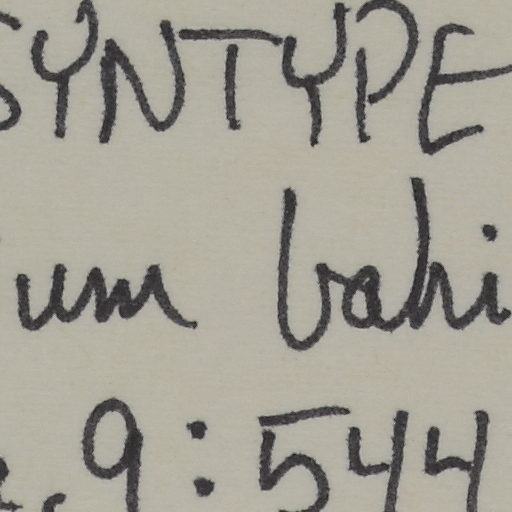 SYNTYPE
um bahi
. 9:544